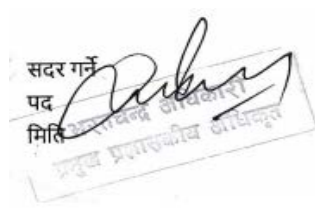 सदर गर्ने
पद
मिति
भरतचन्द्र अधिकारी
प्रमुख प्रशासकीय अधिकृत